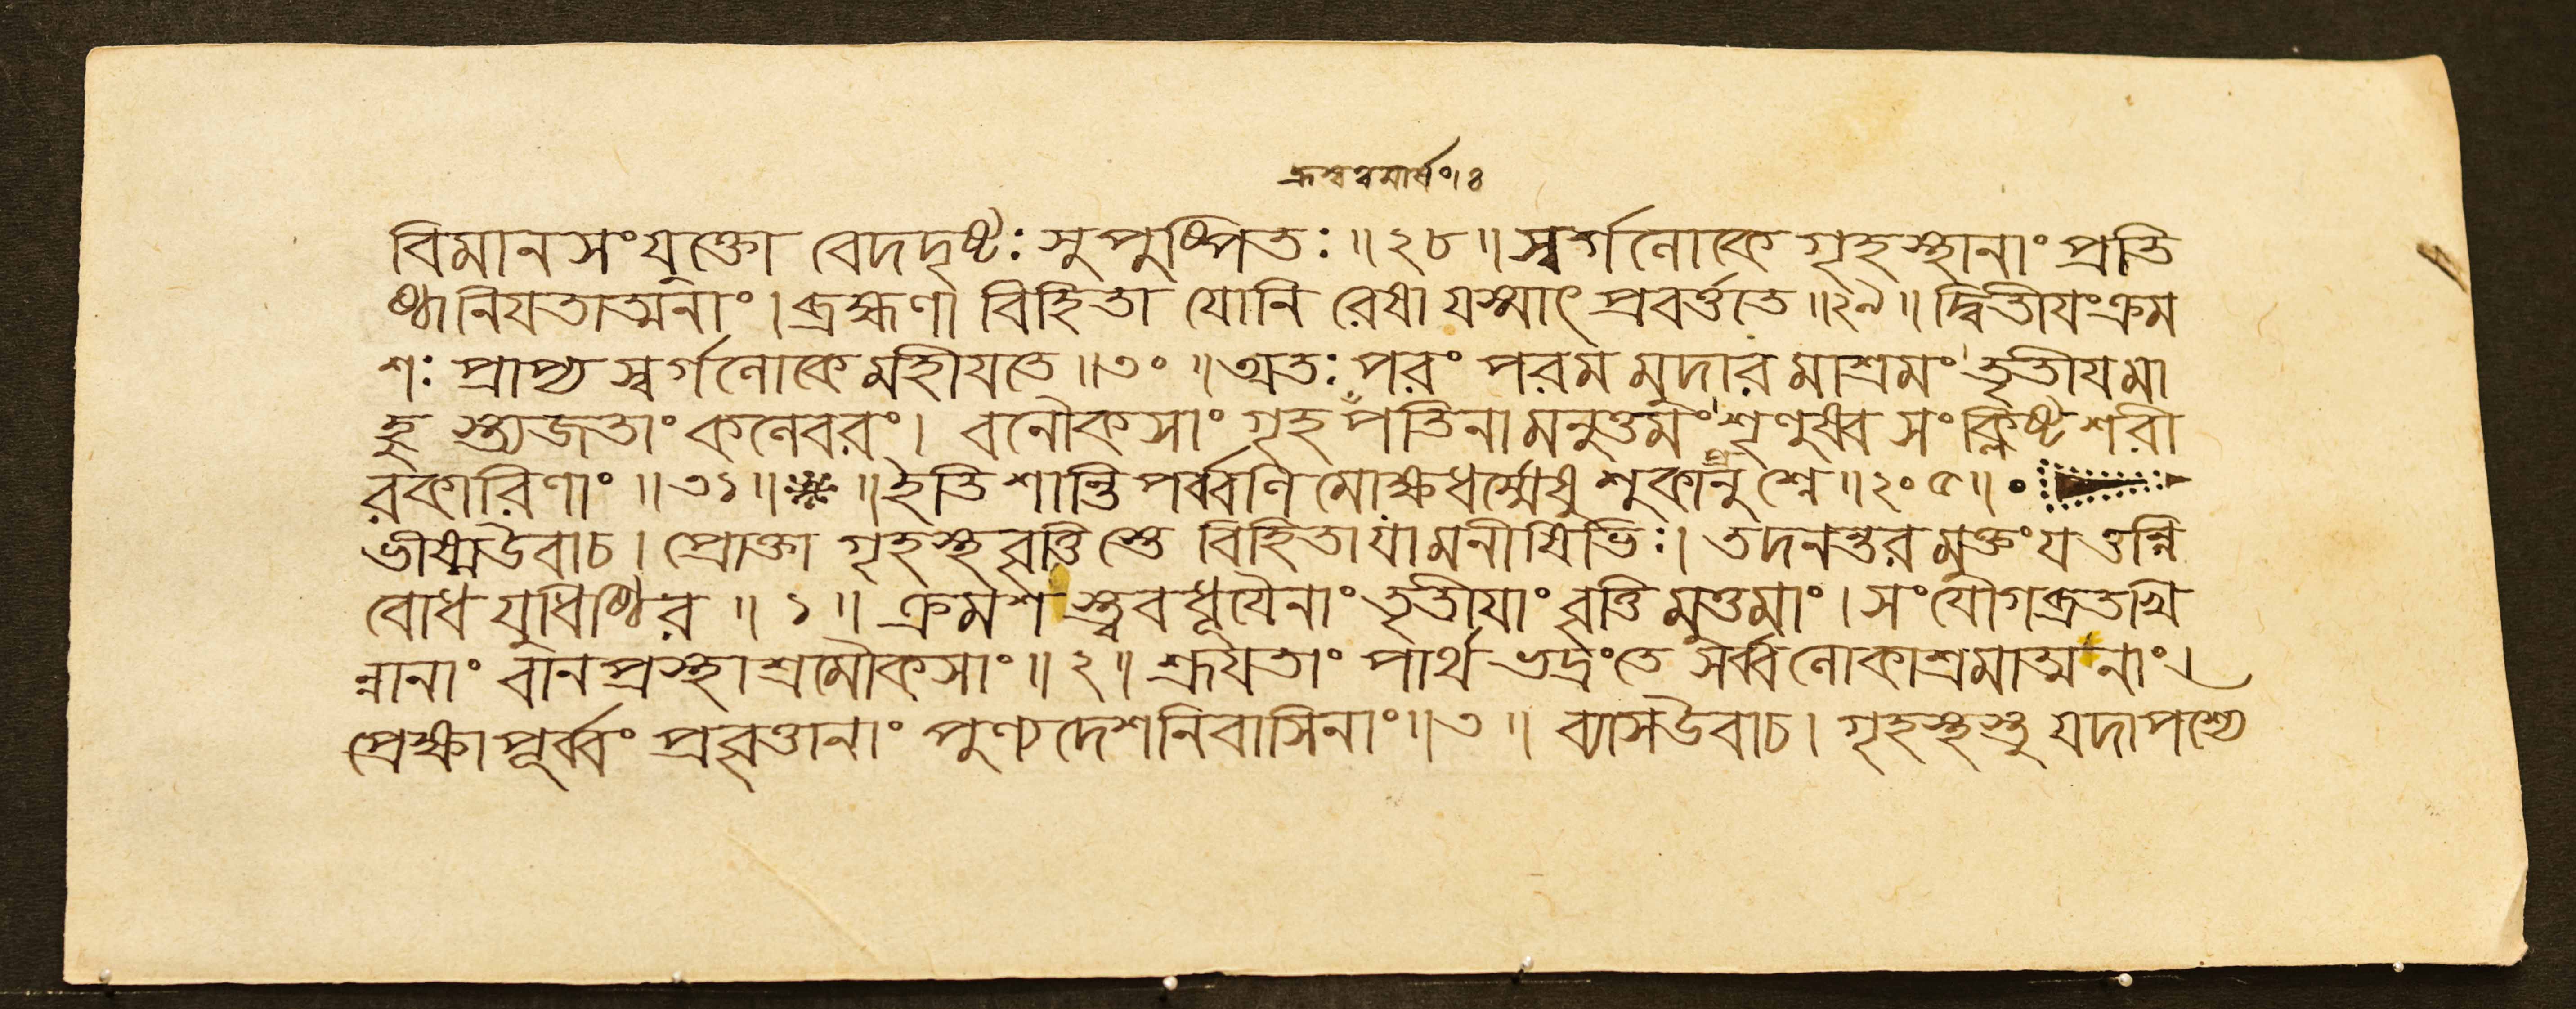 বিমানসংযুক্তো বেদদৃষ্টঃ সুপুষ্পিতঃ ॥ ২৮ ॥ স্বর্গলোকে গৃহস্থানাং প্রতি
ষ্ঠা নিযতাত্মনাং । ব্রহ্মণা বিহিতা যোনি রেষা যস্মাৎ প্রবর্ত্ততে ॥ ২৯ ॥ দ্বিতীযং ক্রম
শঃ প্রাপ্য স্বর্গলোকে মহীযতে ॥ ৩০ ॥ অতঃ পরং পরম মুদার মাশ্রমং তৃতীয মা
হু স্ত্যজতাং কলেবরং । বনৌকসাং গৃহপতিনা মনুত্তমং শৃণুষ্ব সংক্লিষ্ট শরী
রকারিণাং ॥ ৩১ ॥ ॥ ইতি শান্তিপর্ব্বণি মোক্ষধর্ম্মেষু শুকানুপ্রশ্নে ॥ ২০৫ ॥
ভীষ্মউবাচ । প্রোক্তা গৃহস্থবৃত্তি স্তে বিহিতা যা মনীষিভিঃ । তদনন্তর মুক্তং য ত্তন্নি
বোধ যুধিষ্ঠির ॥ ১ ॥ ক্রমশ স্ত্ববধূযৈনাং তৃতীযাং বৃত্তি মুত্তমাং । সংযোগব্রতখি
ন্নানাং বানপ্রস্থাশ্রমৌকসাং ॥ ২ ॥ শ্রূযতাং পার্থ ভদ্রং তে সর্ব্বলোকাশ্রমাত্মনাং ।
প্রেক্ষাপূর্ব্বং প্রবৃত্তানাং পুণ্যদেশনিবাসিনাং ॥ ৩ ॥ ব্যাসউবাচ । গৃহস্থস্তু যদা পশ্যে